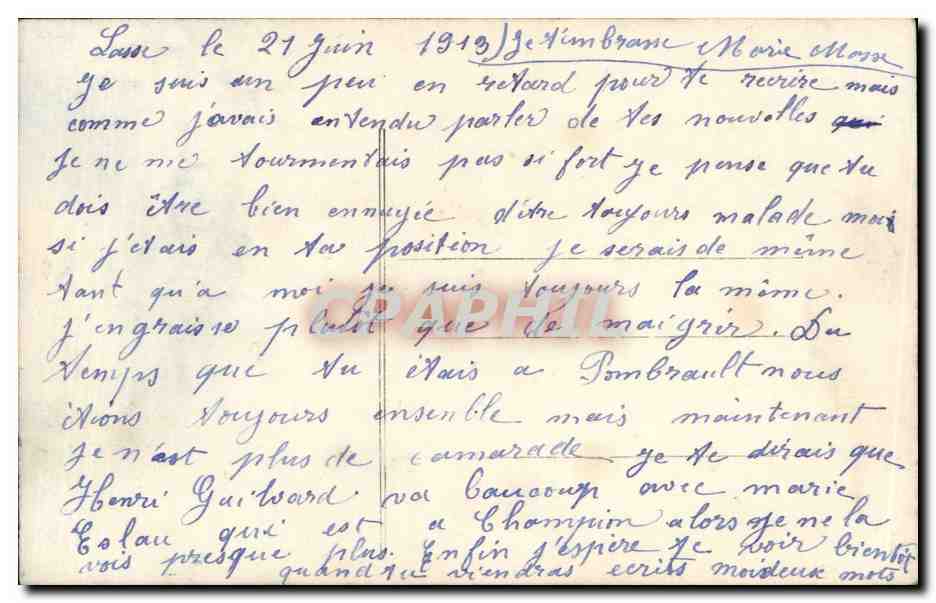 Lasse le 21 Juin 1913) Je t'imbrasse Marie Masse
Je suis un peu en retard pour te recrire mais
comme j'avais entendu parler de tes nouvelles qui
Je ne me tourmentais pas si fort Je pense que tu
dois être bien ennuyée d'être toujours malade mais
si j'étais en ta position je serais de même
tant qu'a moi je suis toujours la même.
j'engraisse plutôt que de maigrir. Du
temps que tu étais a Pombrault nous
étions toujours ensenble mais maintenant
Je n'est plus de camarade Je te dirais que
Henri Guilvard va baucoup avec marie
Eslau qui est a Champion alors Je ne la
vois presque plus. Enfin j'espère te voir bientôt
quand tu viendras ecrits moi deux mots
CPAPHIL